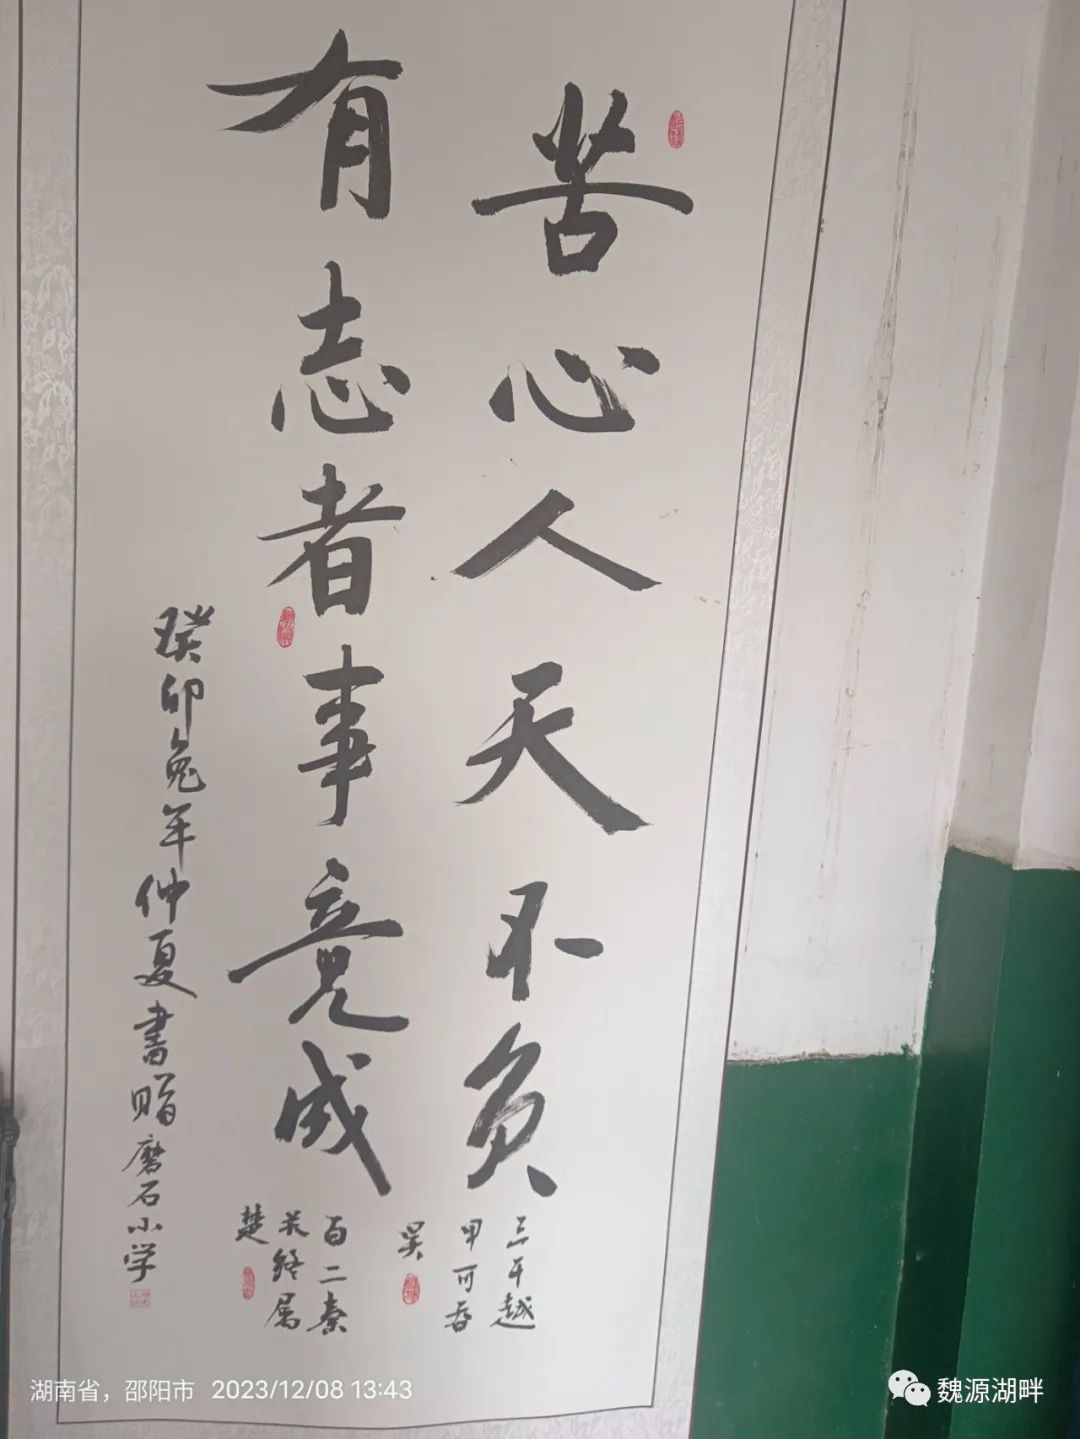 苦心人天不负
三千越
甲可吞
吴
有志者事竟成
百二秦
关终属
楚
癸卯兔年仲夏書赠磨石小学
湖南省，邵阳市 2023/12/08 13:43
魏源湖畔